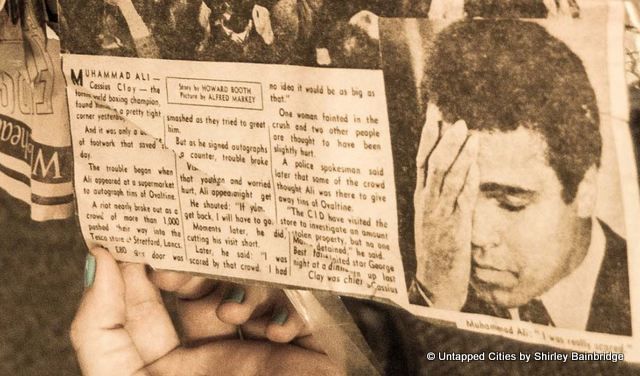 MUHAMMAD ALI —
Cassius Clay — the
world boxing champion,
found in a pretty tight
corner yesterday
And it was only a
of footwork that saved
day.
The trouble began when
Ali appeared at a supermarket
to autograph tins of Ovaltine.
A riot nearly broke out as a
crowd of more than 1,000
pushed their way into the
Tesco store at Stretford, Lancs.
£80 door was
Story by HOWARD BOOTH
Picture by ALFRED MARKEY
smashed as they tried to greet
him.
But as he signed autographs
counter, trouble broke
that and worried
hurt, Ali
He shouted: "If you
get back, I will have to go.
Moments later, he did,
cutting his visit short.
Later, he said: "I was
scared by that crowd. I had
no idea it would be as big as
that."
One woman fainted in the
crush and two other people
are thought to have been
slightly hurt.
A police spokesman said
later that some of the crowd
thought Ali was there to give
away tins of Ovaltine.
"The CID have visited the
store to investigate an amount
stolen property, but no one
detained," he said.
Best star George
night at a up last
Clay was Cassius
Muhammad Ali: "I was really scared"
© Untapped Cities by Shirley Bainbridge